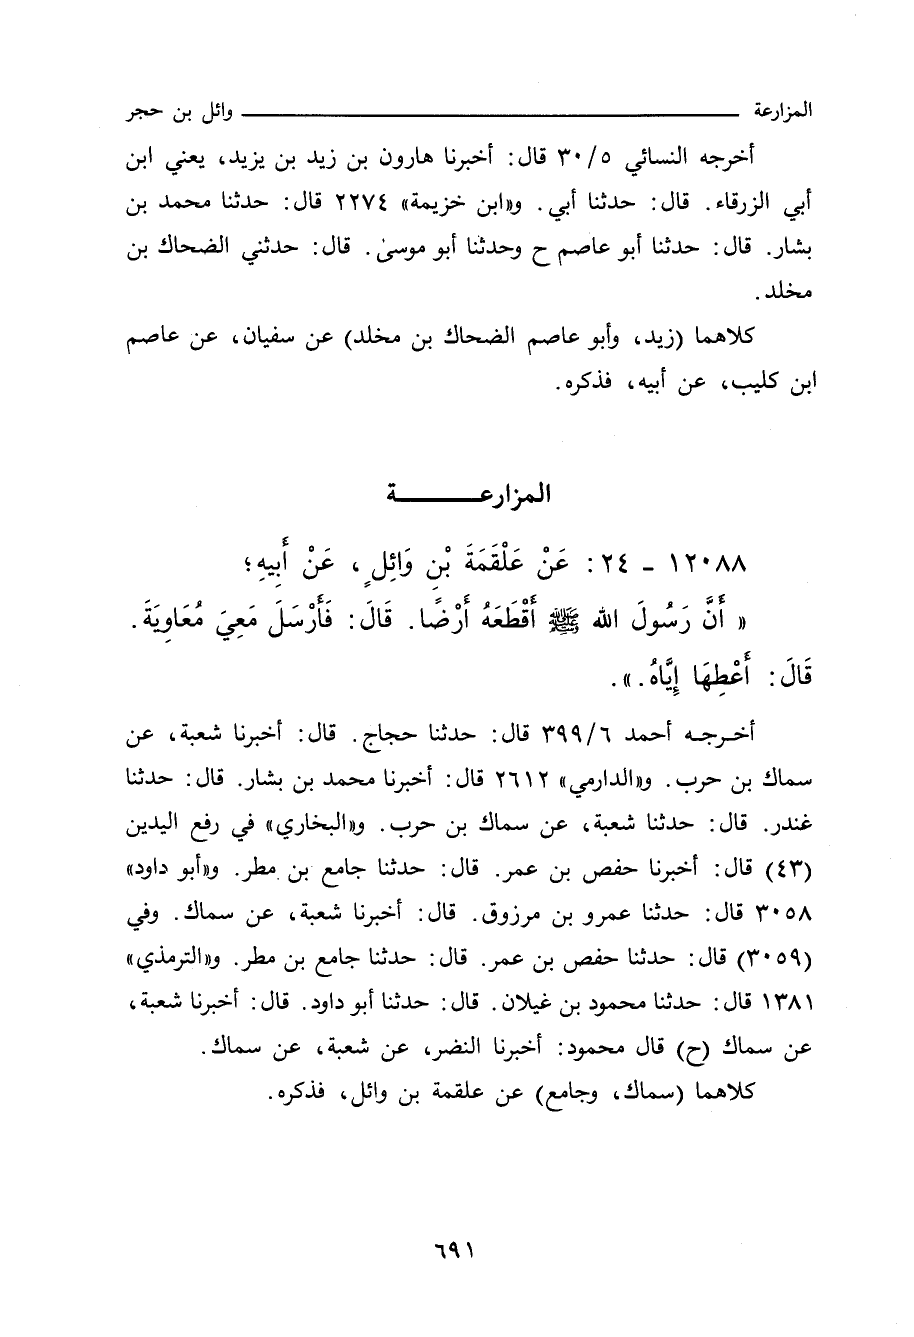 المزارعة ــــــــــ وائل بن حجر
أخرجه النسائي ٣٠/٥ قال: أخبرنا هارون بن زيد بن يزيد، يعني ابن
أبي الزرقاء. قال: حدثنا أبي. و«ابن خزيمة» ٢٢٧٤ قال: حدثنا محمد بن
بشار. قال: حدثنا أبو عاصم ح وحدثنا أبو موسىٰ. قال: حدثني الضحاك بن
مخلد.
كلاهما (زيد، وأبو عاصم الضحاك بن مخلد) عن سفيان، عن عاصم
ابن كليب، عن أبيه، فذكره.
المزارعـــــــة
١٢٠٨٨ ـ ٢٤: عَنْ عَلْقَمَةَ بْنِ وَائِلٍ، عَنْ أَبِيهِ؛
« أَنَّ رَسُولَ الله ﷺ أَقْطَعَهُ أَرْضًا. قَالَ: فَأَرْسَلَ مَعِيَ مُعَاوِيَةَ.
قَالَ: أَعْطِهَا إِيَّاهُ.».
أخـرجـه أحمد ٣٩٩/٦ قال: حدثنا حجاج. قال: أخبرنا شعبة، عن
سماك بن حرب. و«الدارمي» ٢٦١٢ قال: أخبرنا محمد بن بشار. قال: حدثنا
غندر. قال: حدثنا شعبة، عن سماك بن حرب. و«البخاري» في رفع اليدين
(٤٣) قال: أخبرنا حفص بن عمر. قال: حدثنا جامع بن مطر. و«أبو داود»
٣٠٥٨ قال: حدثنا عمرو بن مرزوق. قال: أخبرنا شعبة، عن سماك. وفي
(٣٠٥٩) قال: حدثنا حفص بن عمر. قال: حدثنا جامع بن مطر. و«الترمذي»
١٣٨١ قال: حدثنا محمود بن غيلان. قال: حدثنا أبو داود. قال: أخبرنا شعبة،
عن سماك (ح) قال محمود: أخبرنا النضر، عن شعبة، عن سماك.
كلاهما (سماك، وجامع) عن علقمة بن وائل، فذكره.
٦٩١